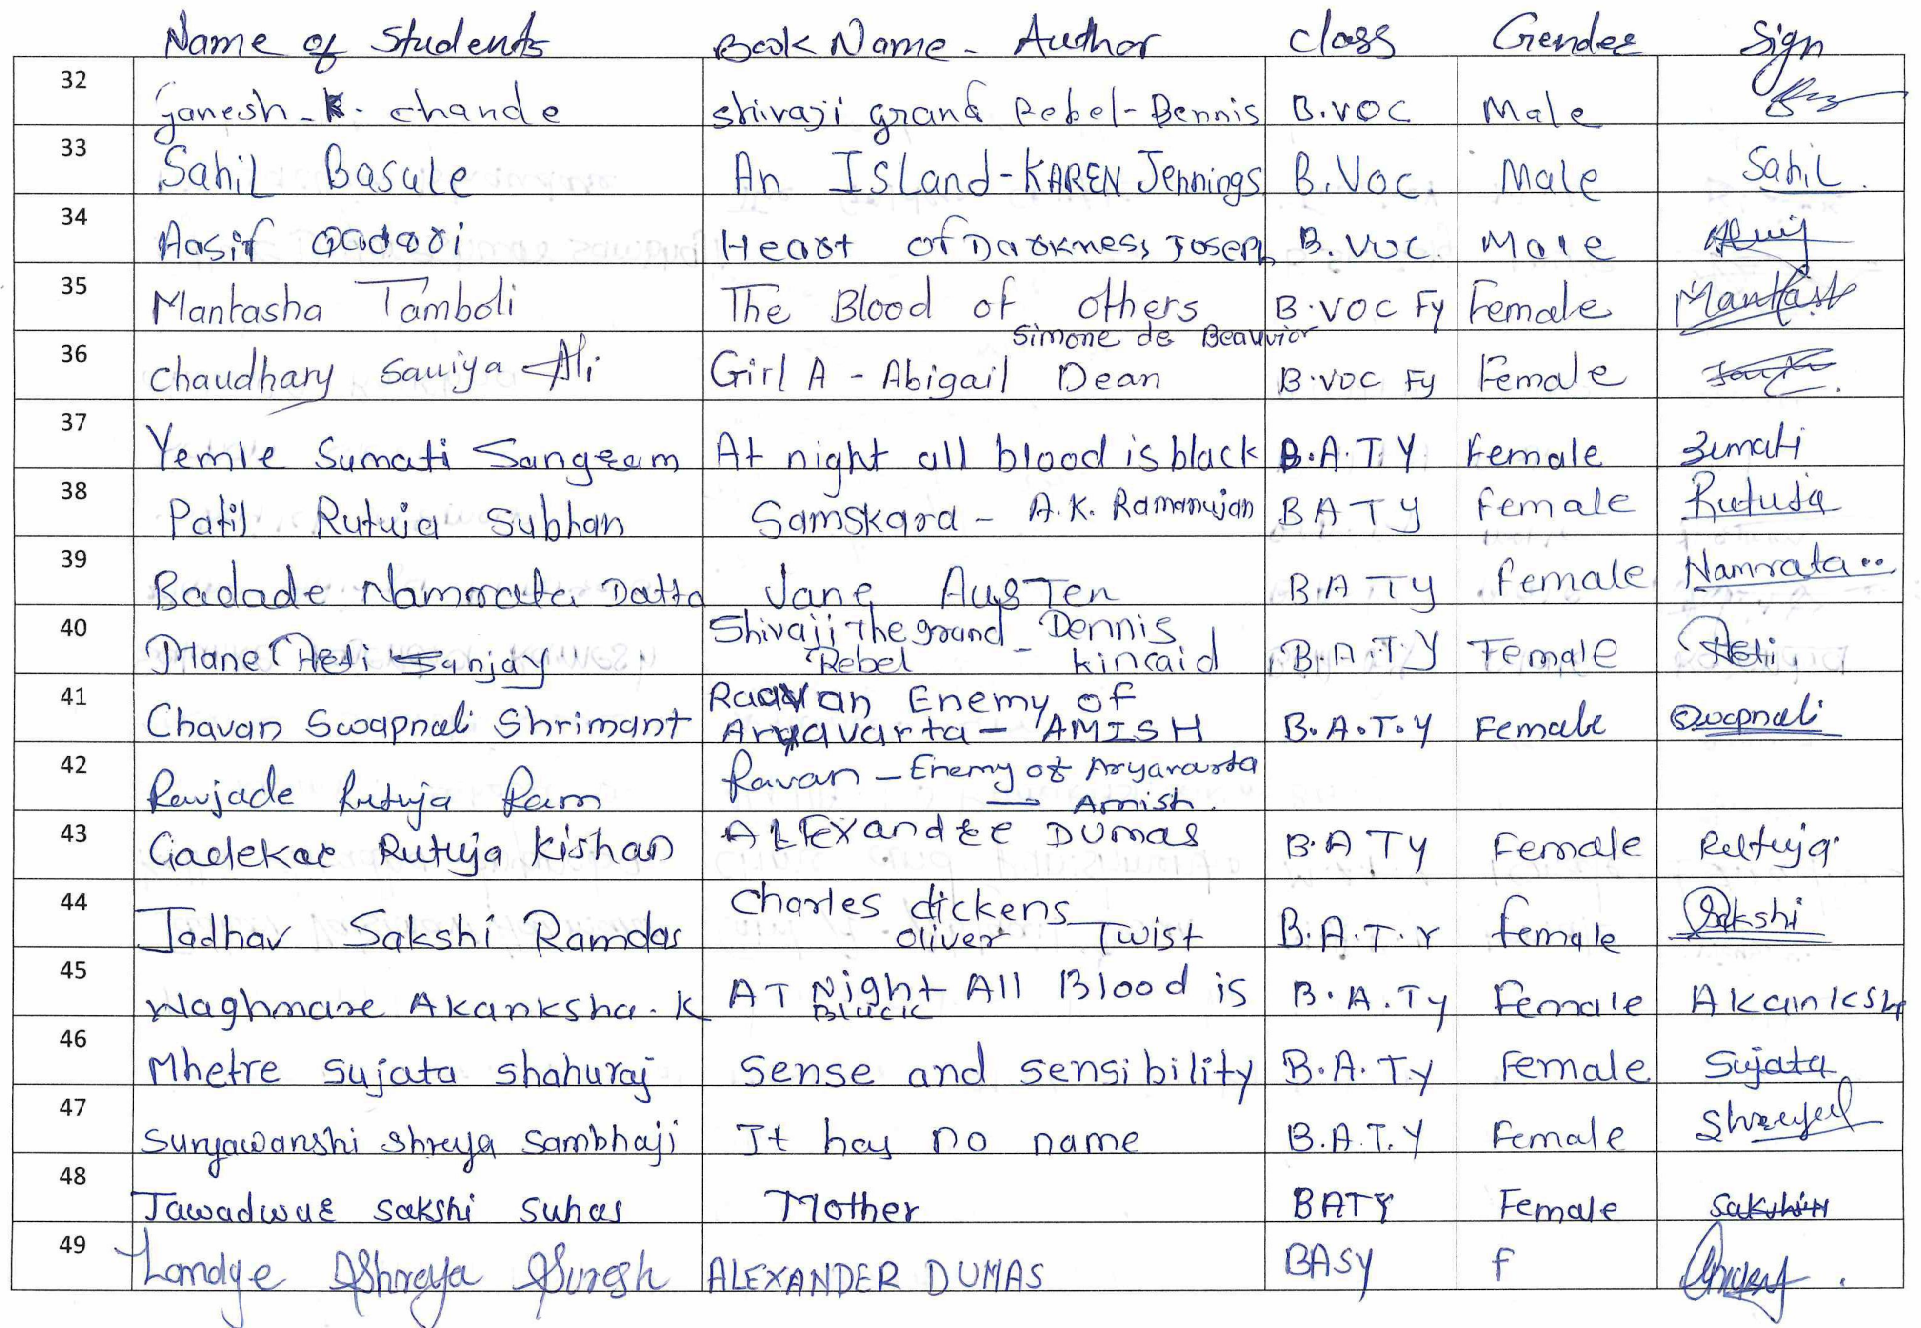 Name of Students Book Name - Author class Gender Sign
32 Ganesh K. chande shivaji grand Rebel - Dennis B.VOC Male
33 Sahil Basule An Island - KAREN Jennings B.Voc Male Sahil
34 Aasif Qadori Heart of Darkness, Joseph B.VOC Male
35 Mantasha Tamboli The Blood of others B.VOC Fy Female Mantash
Simone de Beauvior
36 chaudhary Saniya Ali Girl A - Abigail Dean B.VOC Fy Female
37 Yemle Sumati Sangeem At night all blood is black B.A.T.Y Female Sumati
38 Patil Rutuja Subhan Samskara - A.K. Ramanujan BATY Female Rutuja
39 Badade Namrata Datta Jane Austen B.A TY Female Namrata
40 Mane Sanjay Shivaji The grand Rebel - Dennis kincaid B.A.T.Y Female
41 Chavan Swapnali Shrimant Raavan Enemy of Aryavarta - AMISH B.A.T.Y Female Swapnali
42 Raujade Rutuja Ram Ravan - Enemy of Aryavarta - Amish.
43 Gadekar Rutuja Kishan ALEXandre DUMAS B.A TY Female Rutuja
44 Jadhav Sakshi Ramdas Charles dickens Oliver Twist B.A.T.Y female Sakshi
45 Waghmare Akanksha. K AT Night All Blood is Black B.A.Ty Female Akanksha
46 Mhetre Sujata shahuraj Sense and sensibility B.A.Ty Female Sujata
47 Suryawanshi Shreya Sambhaji It has no name B.A.T.Y Female Shreya
48 Jawadwar sakshi suhas Mother BATY Female Sakshi
49 Landge Shreya Suresh ALEXANDER DUMAS BASY F